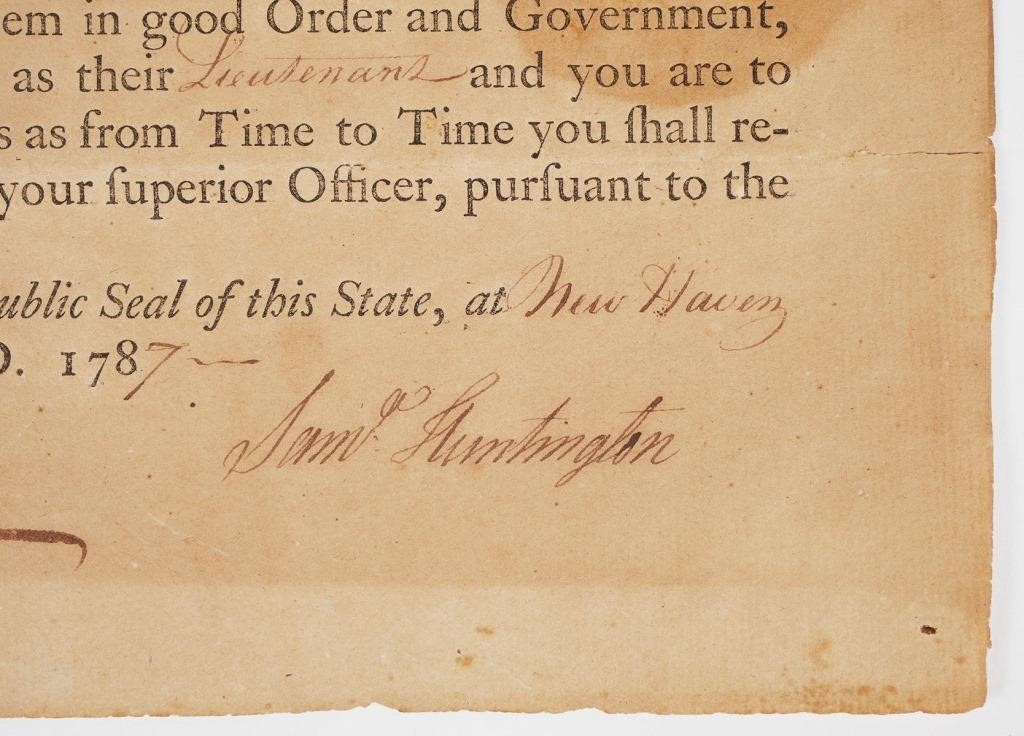 em in good Order and Government,
as their Lieutenant and you are to
s as from Time to Time you ſhall re-
your ſuperior Officer, purſuant to the
ublic Seal of this State, at New Haven
D. 1787—
Samˡ. Huntington